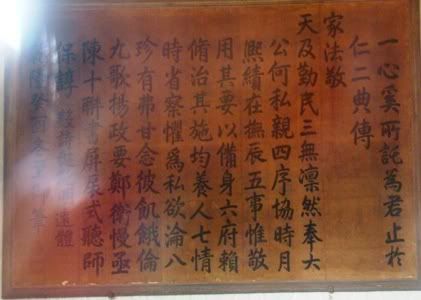 一心奚所託為君止於
仁二典傳
家法敬
天及勤民三無凜然奉大
公何私親四序協時月
熈績在撫辰五事惟敬
用其要以備身六府賴
脩治其施均養人七情
時省察懼為私欲淪八
珍有弗甘念彼飢餓倫
九歌揚政要鄭衛慢亟
陳十聯書屏扆式聽師
保諄 數詩 明遠體
隆癸酉冬至御筆